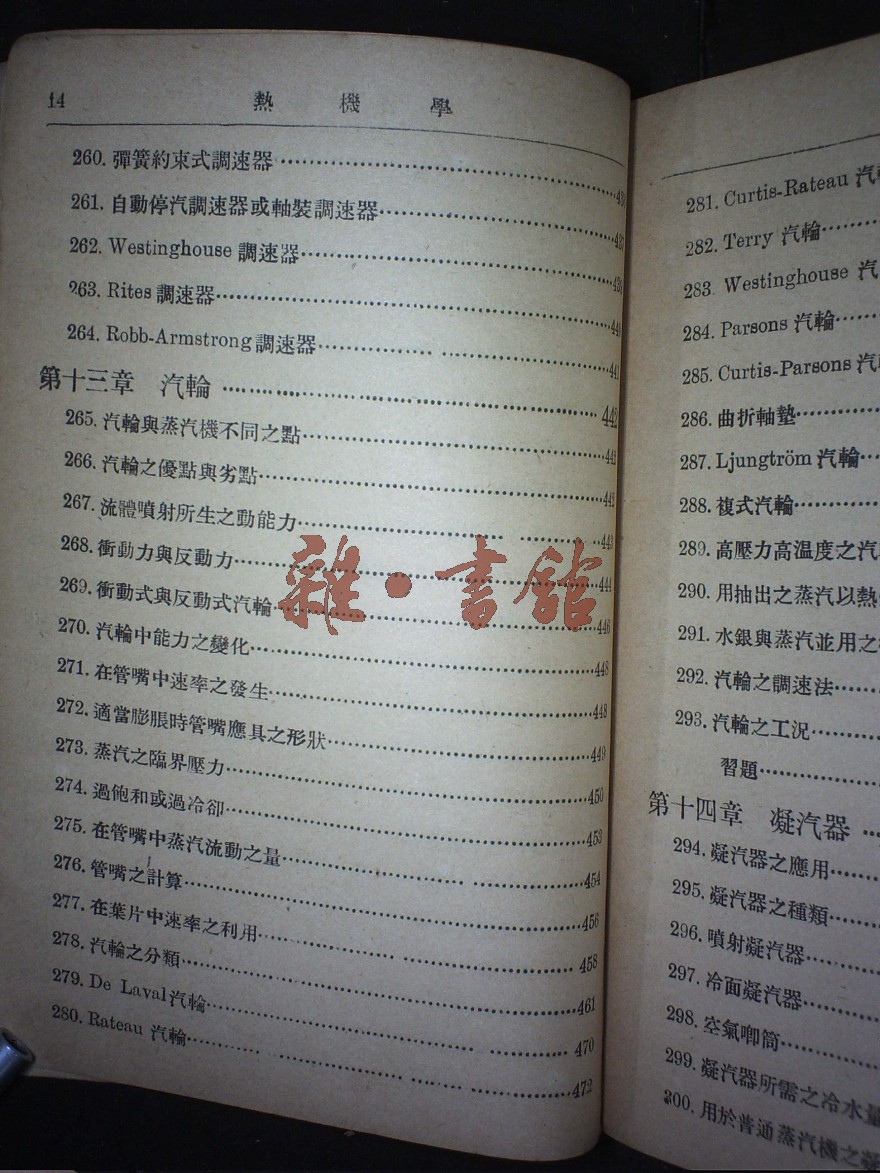 14 熱機學
260. 彈簧約束式調速器
261. 自動停汽調速器或軸裝調速器
262. Westinghouse 調速器
263. Rites 調速器
264. Robb-Armstrong 調速器
第十三章 汽輪 442
265. 汽輪與蒸汽機不同之點
266. 汽輪之優點與劣點
267. 流體噴射所生之動能力 443
268. 衝動力與反動力 444
269. 衝動式與反動式汽輪 446
270. 汽輪中能力之變化 448
271. 在管嘴中速率之發生 448
272. 適當膨脹時管嘴應具之形狀 449
273. 蒸汽之臨界壓力 450
274. 過飽和或過冷卻 453
275. 在管嘴中蒸汽流動之量 454
276. 管嘴之計算 456
277. 在葉片中速率之利用 458
278. 汽輪之分類 461
279. De Laval 汽輪 470
280. Rateau 汽輪 472
雜·書館
281. Curtis-Rateau 汽
282. Terry 汽輪
283. Westinghouse 汽
284. Parsons 汽輪
285. Curtis-Parsons 汽
286. 曲折軸墊
287. Ljungtröm 汽輪
288. 複式汽輪
289. 高壓力高溫度之汽
290. 用抽出之蒸汽以熱
291. 水銀與蒸汽並用之
292. 汽輪之調速法
293. 汽輪之工況
習題
第十四章 凝汽器
294. 凝汽器之應用
295. 凝汽器之種類
296. 噴射凝汽器
297. 冷面凝汽器
298. 空氣唧筒
299. 凝汽器所需之冷水量
300. 用於普通蒸汽機之